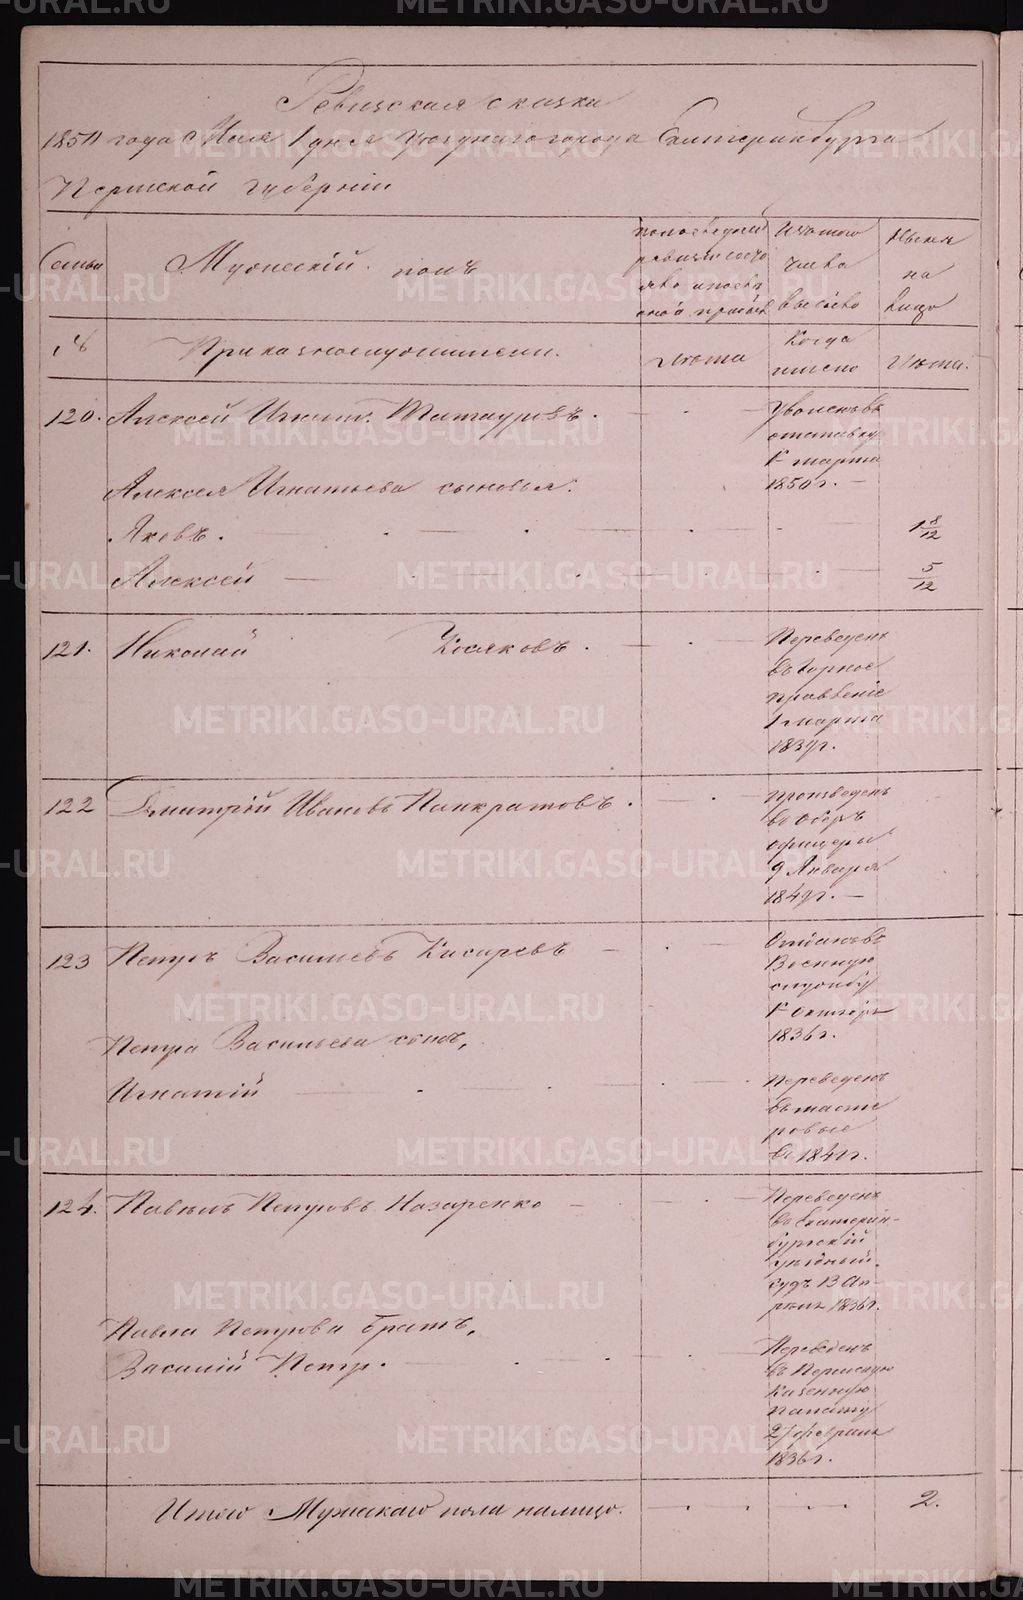 Ревизская сказка
1850 года Мая 1 дня Уезднаго города Екатеринбурга
Пермской губернiи
Семьи
Мужескiй полъ
по последней
ревизiи состо
яло и после
оной прибыло
Изъ того
числа
выбыло
Ныне
на
лицо
№
Приказнослужители.
Лѣта
Когда
имено
Лѣта.
120. Алексей Игнат. Татауровъ.
Уволенъ въ
отставку
1 марта
1850 г.
Алексея Игнатьева сыновья:
Яковъ.
1 8/12
Алексей
5/12
121. Николай Косяковъ.
Переведенъ
въ Горное
правленiе
1 марта
1839 г.
122 Дмитрiй Ивановъ Панкратовъ.
Произведенъ
въ Оберъ
офицеры
9 Января
1849 г.
123 Петръ Васильевъ Кисаревъ
Отданъ въ
Военную
службу
1 Октября
1836 г.
Петра Васильева сынъ,
Игнатiй
Переведенъ
въ масте
ровые
въ 1841 г.
124. Павелъ Петровъ Назаренко
Переведенъ
въ Екатерин-
бургскiй
уездный
судъ 13 Ап-
реля 1836 г.
Павла Петрова братъ,
Василiй Петр.
Переведенъ
въ Пермскую
Казенную
палату
27 февраля
1836 г.
Итого Мужскаго пола налицо. 2.
METRIKI.GASO-URAL.RU